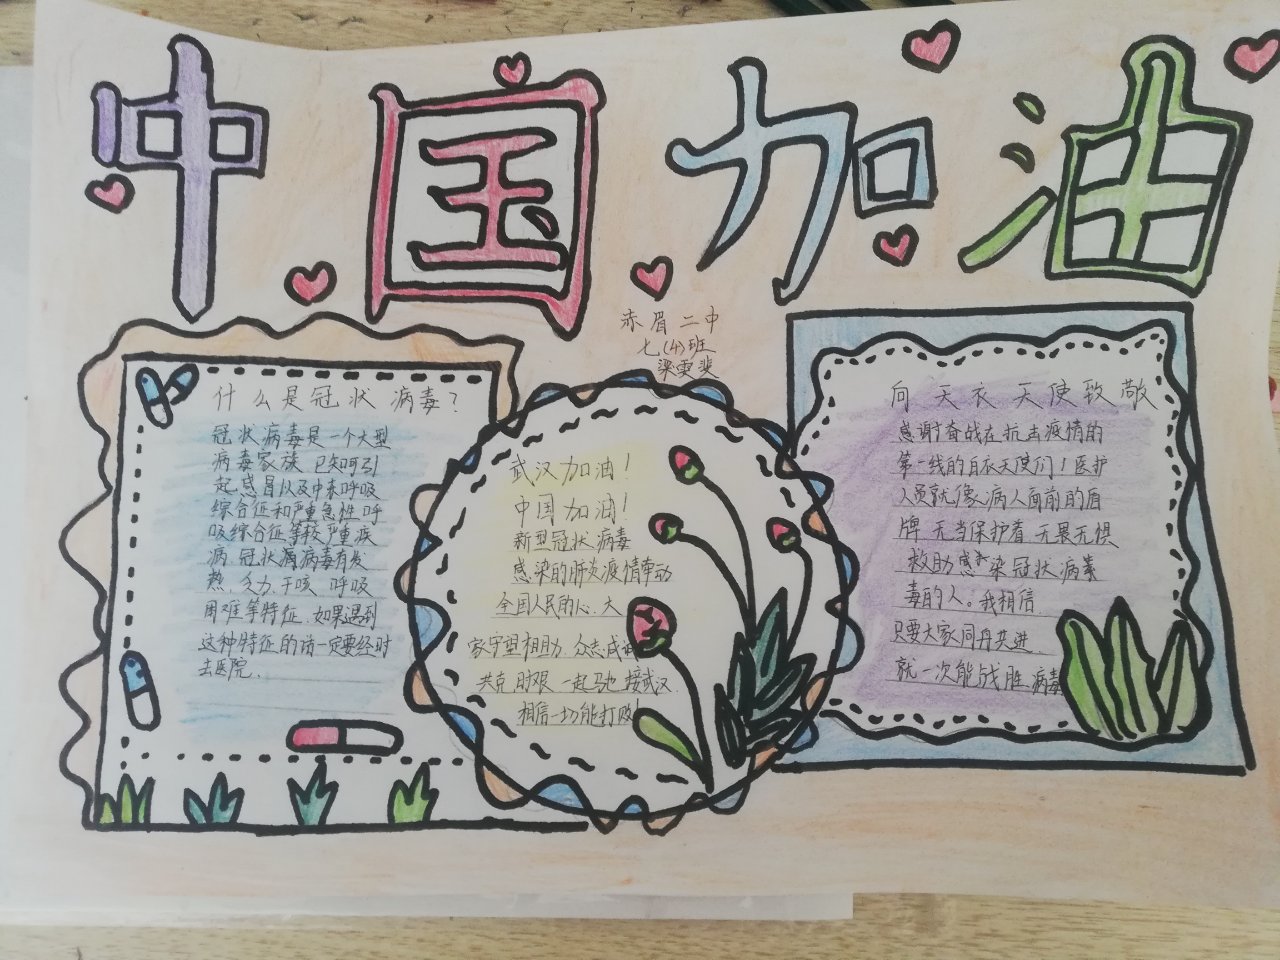 中国加油
赤眉二中
七(4)班
梁雯斐
什么是冠状病毒?
冠状病毒是一个大型
病毒家族 已知可引
起感冒以及中东呼吸
综合征和严重急性呼
吸综合征等较严重疾
病 冠状病毒有发
热.乏力.干咳.呼吸
困难等特征.如果遇到
这种特征的话一定要经时
去医院.
武汉加油!
中国加油!
新型冠状病毒
感染的肺炎疫情牵动
全国人民的心.大
家守望相助.众志成城
共克时艰 一起马也接武汉.
相信一切能打败!
向天衣天使致敬
感谢奋战在抗击疫情的
第一线的白衣天使们!医护
人员就像病人面前的盾
牌 无当保护着 无畏无惧
救助感染冠状病
毒的人。我相信
只要大家同舟共进
就一次能战胜病毒